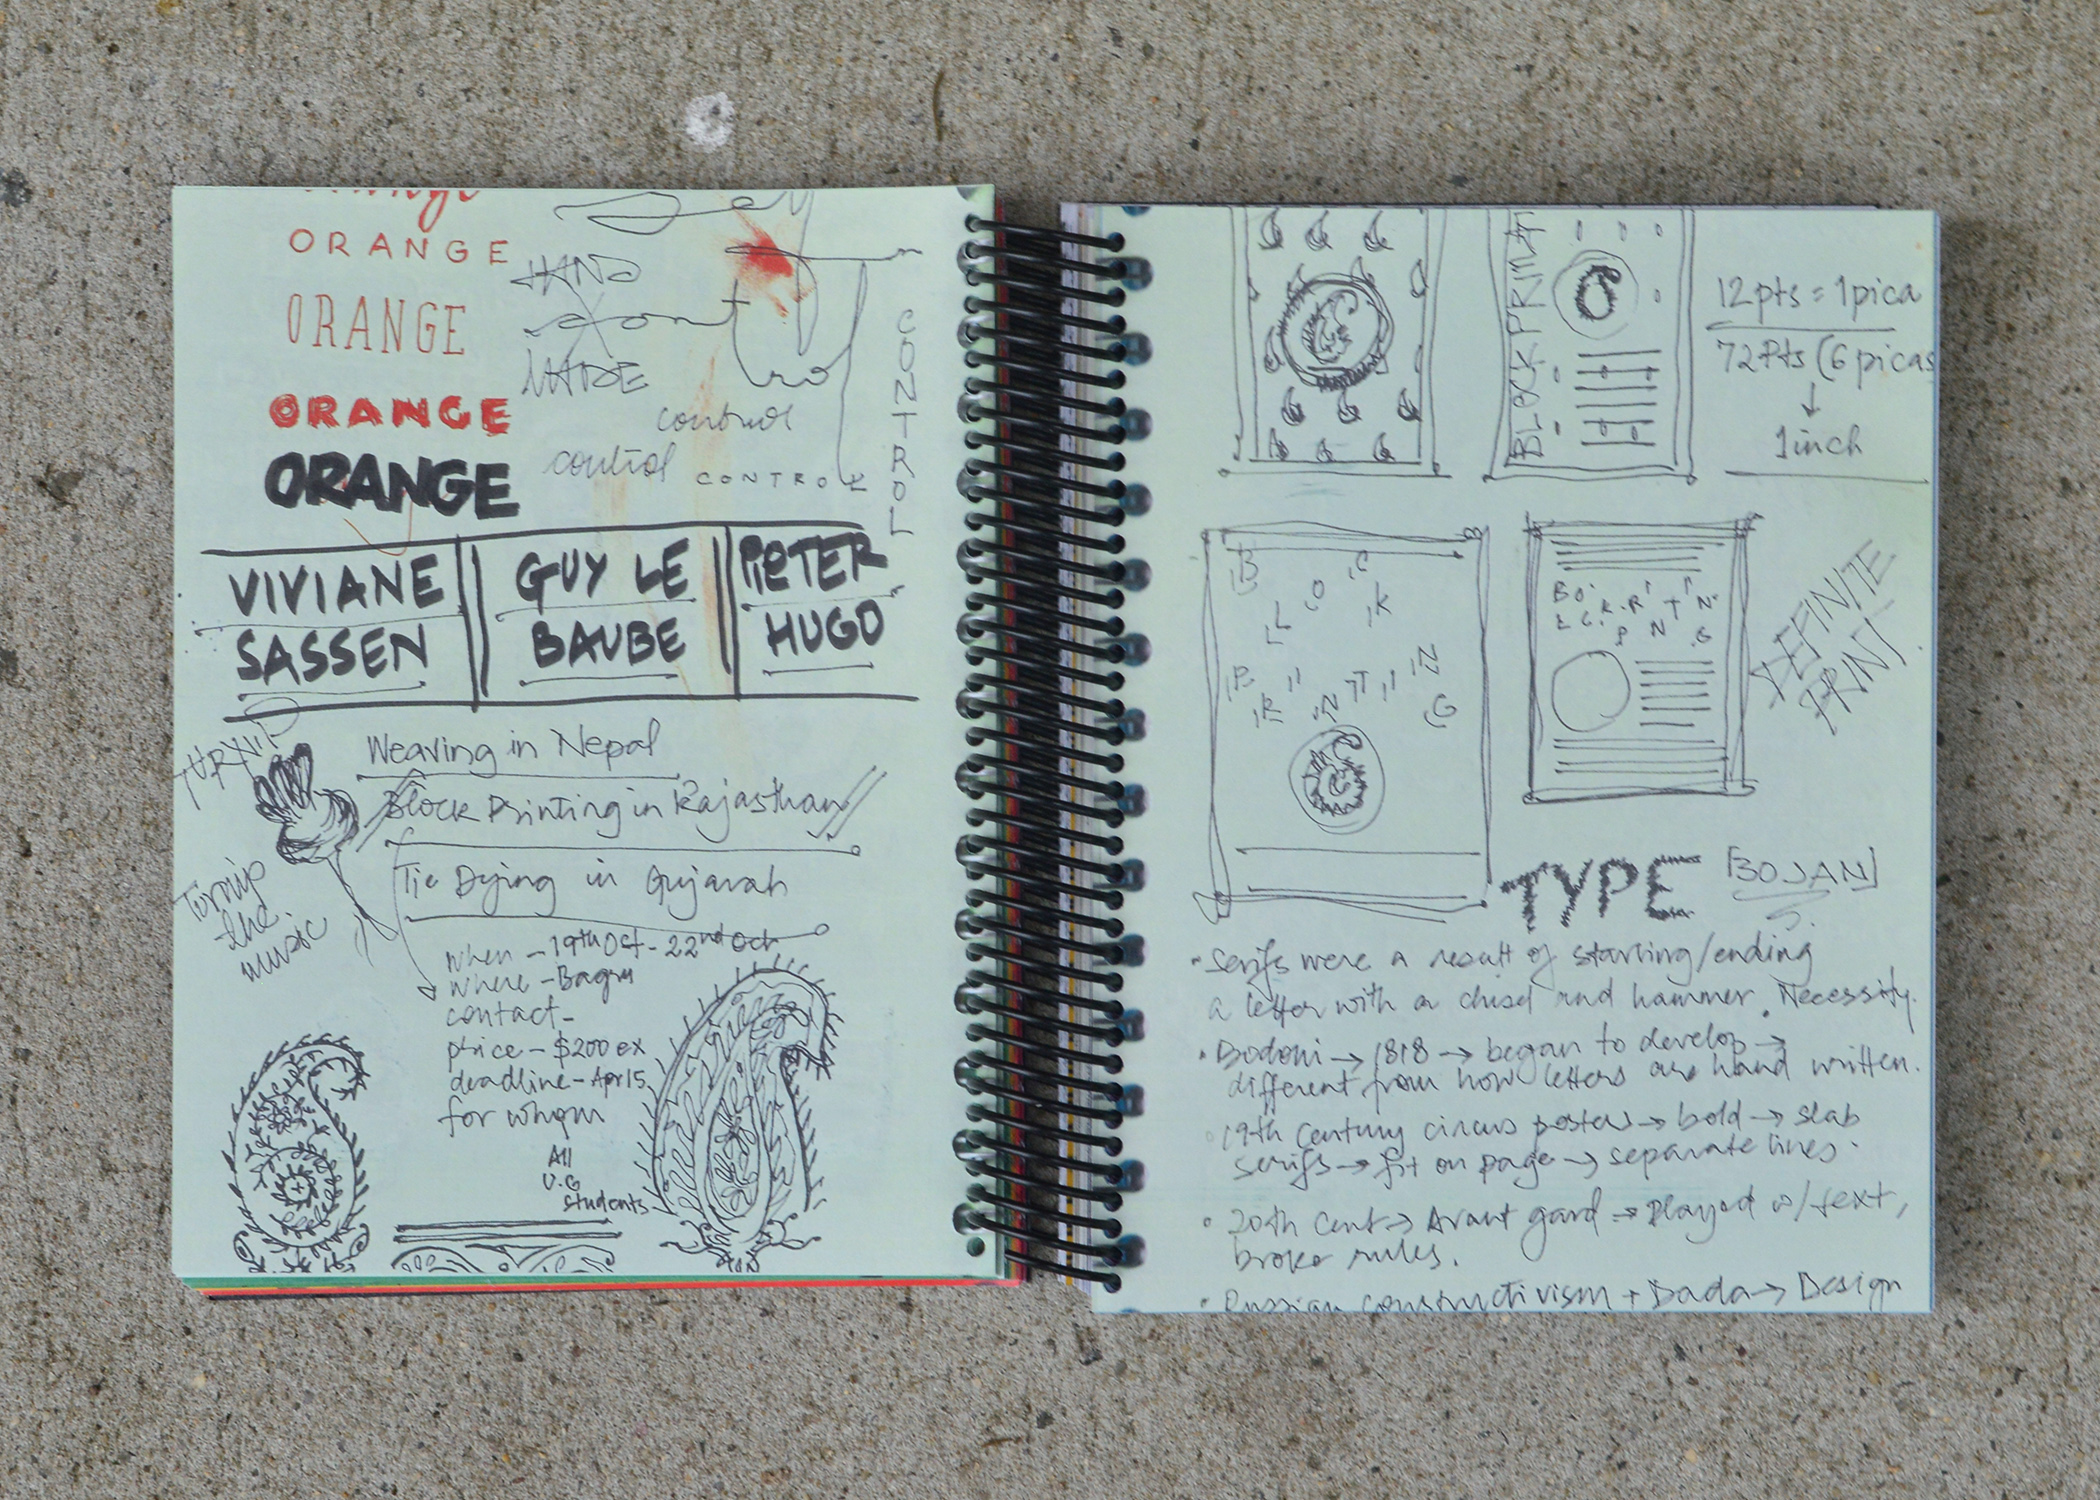 ORANGE
ORANGE
ORANGE
ORANGE
HAND
MADE
control
control
CONTROL
CONTROL
VIVIANE
SASSEN
GUY LE
BAUBE
PIETER
HUGO
TURNIP
Turnip
the
music
Weaving in Nepal
Block Printing in Rajasthan
Tie Dying in Gujarah
when - 19th Oct - 22nd Oct
where - Bagru
contact -
price - $200 ex
deadline - Apr 15
for whom
All
U.G
students
BLOCK PRINT
12 pts = 1 pica
72 Pts (6 picas
1 inch
BLOCK
PRINTING
BLOCK PRINTING
DEFINITE
PRINT
TYPE [BOJAN]
• Serifs were a result of starting/ending
a letter with a chisel and hammer. Necessity.
• Bodoni → 1818 → began to develop →
different from how letters are hand written.
• 19th Century circus posters → bold → slab
serifs → fit on page → separate lines.
• 20th Cent → Avant gard → Played w/ text,
broke rules.
• Russian constructivism + Dada → Design